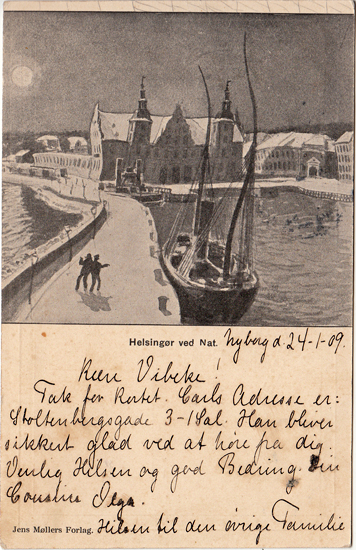 Helsingør ved Nat. Nyborg d. 24-1-09.
Kære Vibeke!
Tak for kortet. Carls Adresse er:
Stoltenbergsgade 3-1 Sal. Han bliver
sikkert glad ved at høre fra dig.
Venlig Hilsen og god Bedring. Din
Cousine Olga.
Jens Møllers Forlag. Hilsen til den øvrige Familie